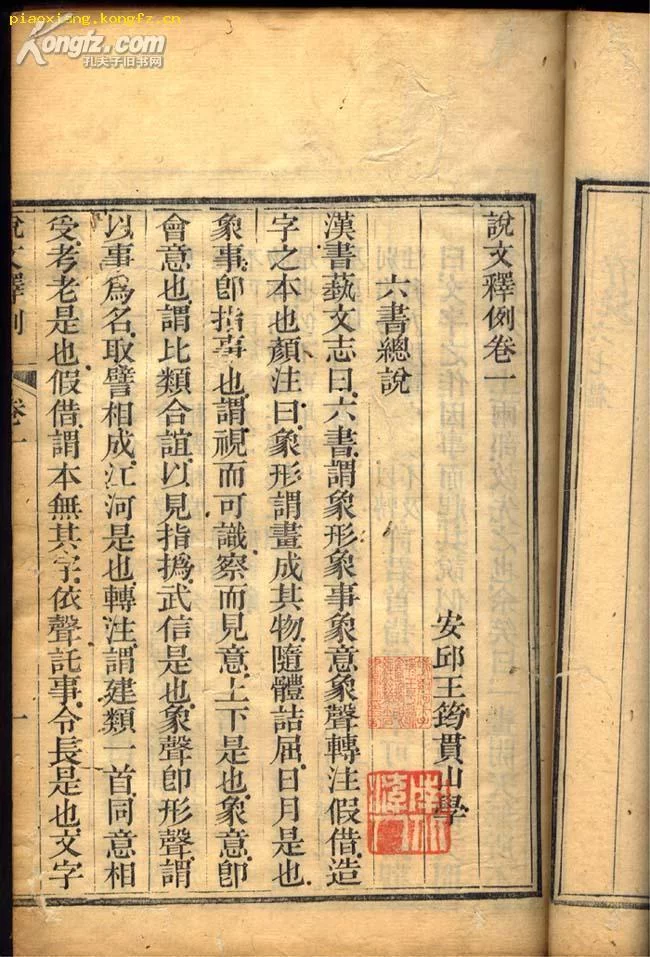 piaoxiang.kongfz.cn
Kongfz.com
孔夫子旧书网
說文釋例卷一
安邱王筠貫山學
六書總說
漢書藝文志曰六書謂象形象事象意象聲轉注假借造
字之本也顏注曰象形謂畫成其物隨體詰屈日月是也
象事卽指事也謂視而可識察而見意上下是也象意卽
會意也謂比類合誼以見指撝武信是也象聲卽形聲謂
以事爲名取譬相成江河是也轉注謂建類一首同意相
受考老是也假借謂本無其字依聲託事令長是也文字
說文釋例
卷一
一